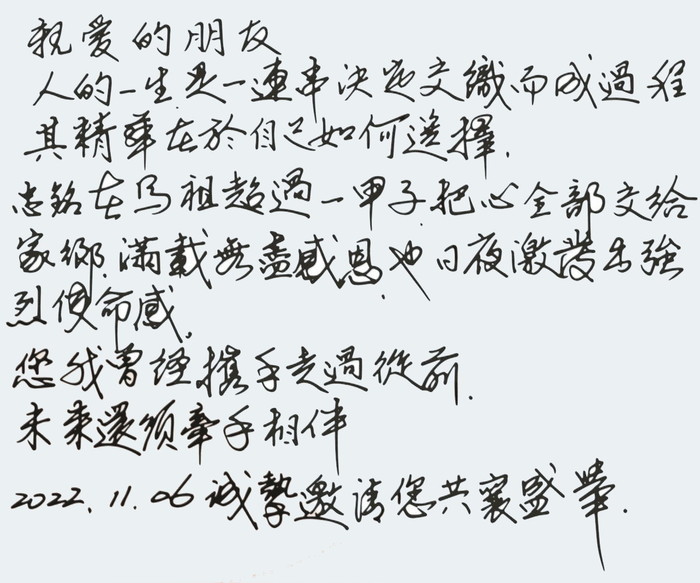 親愛的朋友
人的一生是一連串決定交織而成過程
其精華在於自己如何選擇.
志銘在馬祖超過一甲子.把心全部交給
家鄉.滿載無盡感恩.也日夜激發出強
烈使命感.
您我曾經攜手走過從前.
未來還須牽手相伴
2022.11.06 誠摯邀請您共襄盛舉.